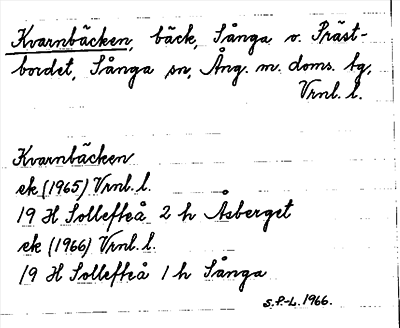 Kvarnbäcken, bäck, Sånga v. Präst-
bordet, Sånga sn, Ång. m. doms. tg,
Vrnl. l.
Kvarnbäcken
ek (1965) Vrnl. l.
19 H Sollefteå 2 h Åsberget
ek (1966) Vrnl. l.
19 H Sollefteå 1 h Sånga
S.P.-L. 1966.